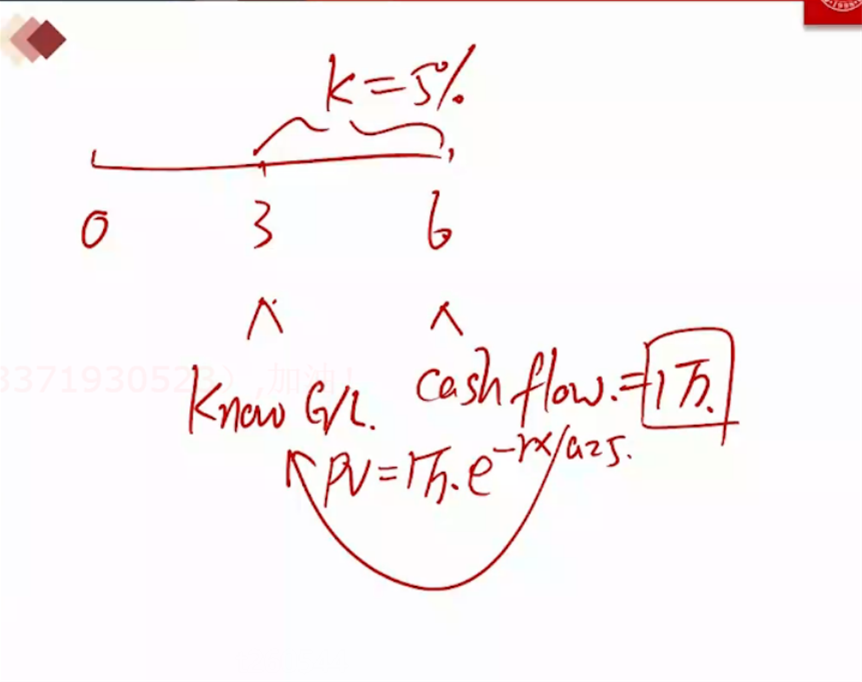 k=5%
0 3 6
know G/L. cash flow.=1万.
PV=1万.e^-r×0.25.
加油!